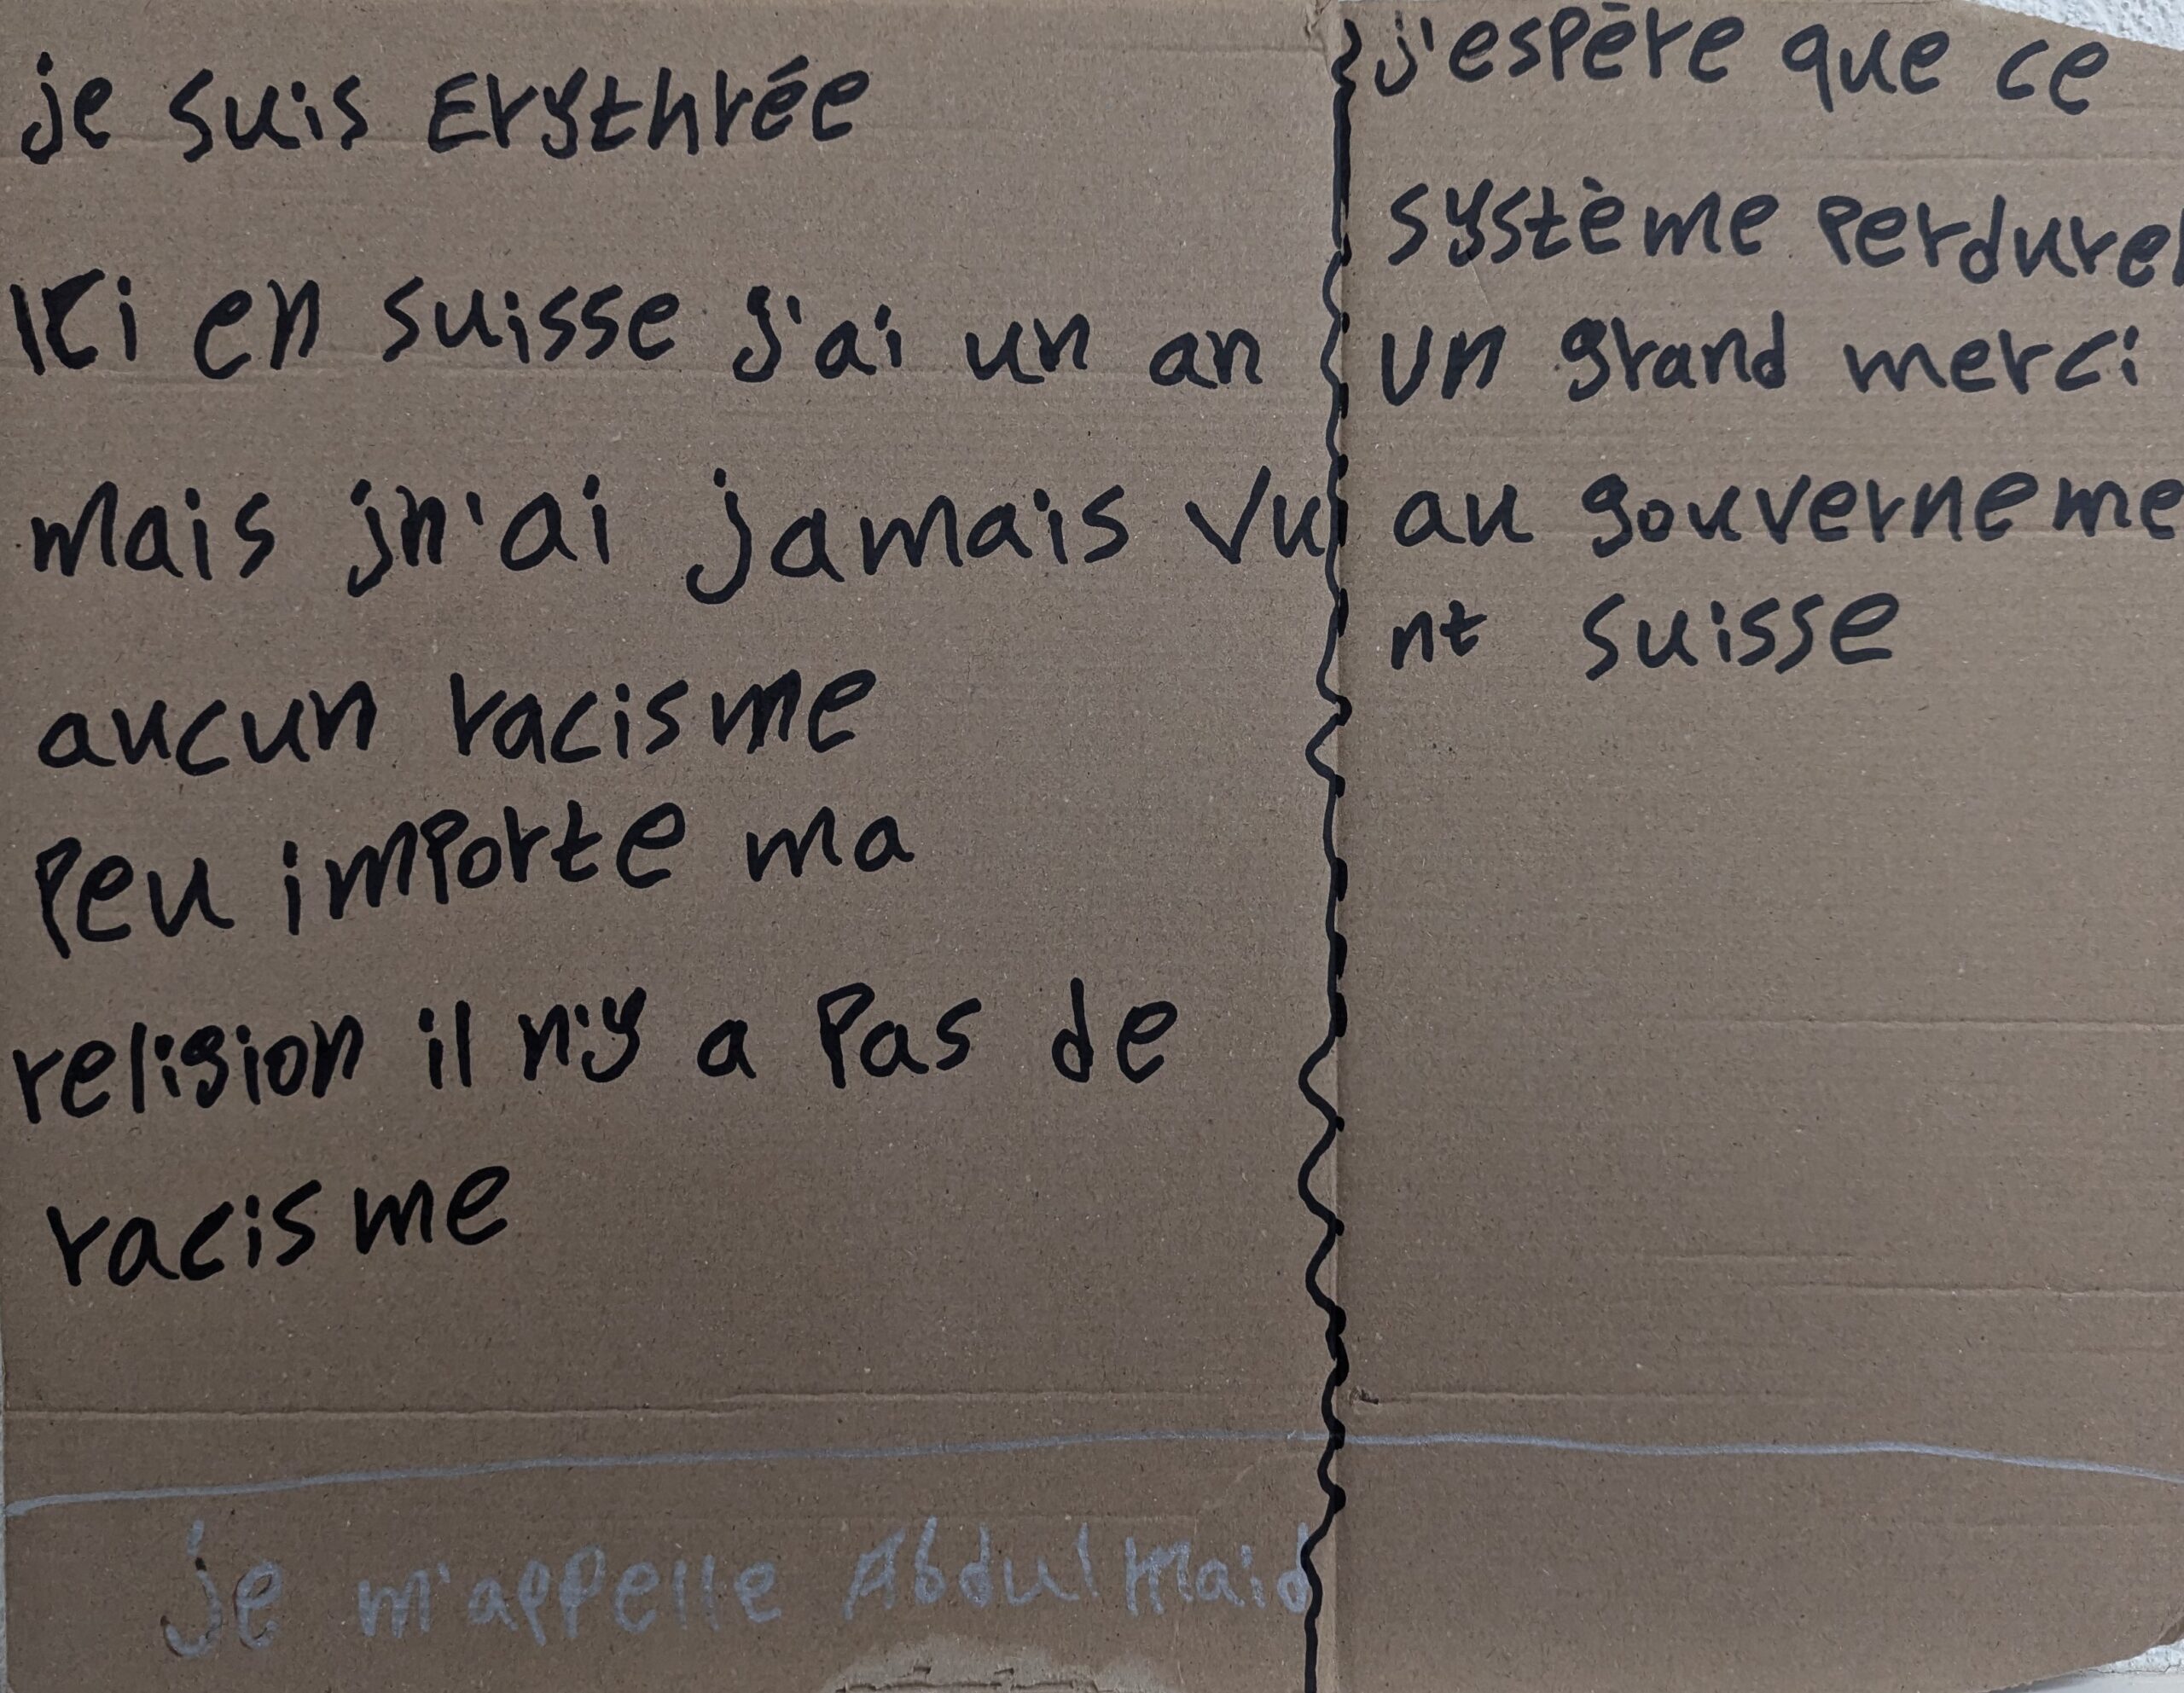 je suis Erythrée
Ici en suisse j'ai un an
mais jn'ai jamais vu
aucun racisme
Peu importe ma
religion il n'y a Pas de
racisme
je m'appelle Abdulmaid
j'espère que ce
système perdurer
un grand merci
au gouverneme
nt suisse